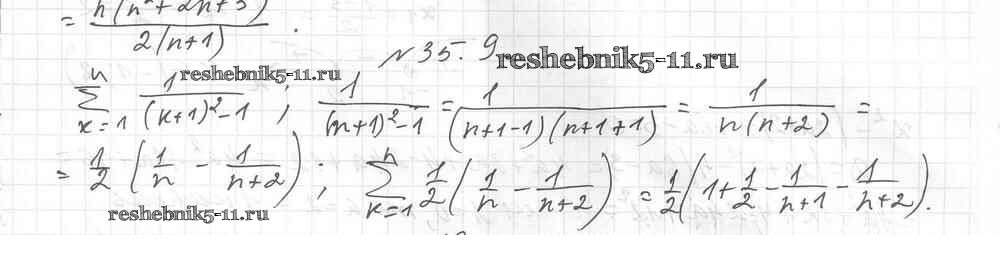 = n(n² + 2n + 3) / 2(n+1) .
№ 35. 9 reshebnik5-11.ru
reshebnik5-11.ru
∑_{k=1}^{n} 1/((k+1)²-1) ; 1/((n+1)²-1) = 1/((n+1-1)(n+1+1)) = 1/(n(n+2)) =
= 1/2 (1/n - 1/(n+2)) ; ∑_{k=1}^{n} 1/2 (1/n - 1/(n+2)) = 1/2 (1 + 1/2 - 1/(n+1) - 1/(n+2)).
reshebnik5-11.ru